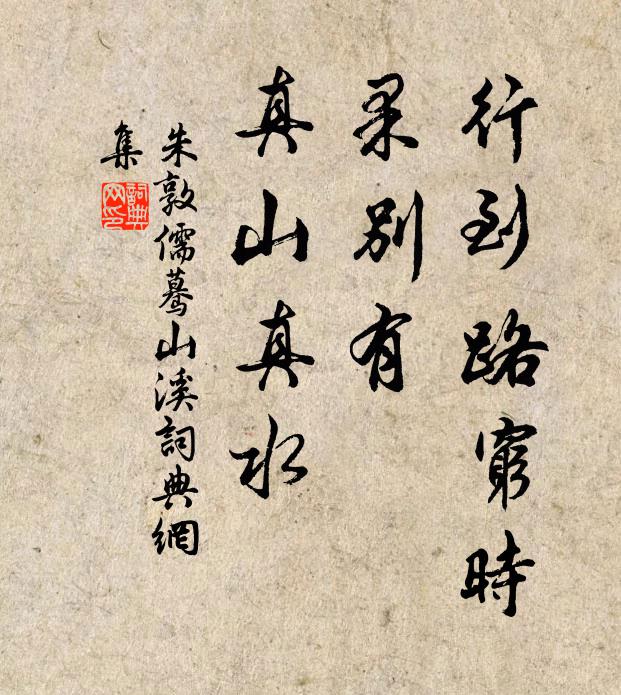 行到路窮時
果別有
真山真水
朱敦儒驀山溪詞典網
集
詞典
网印